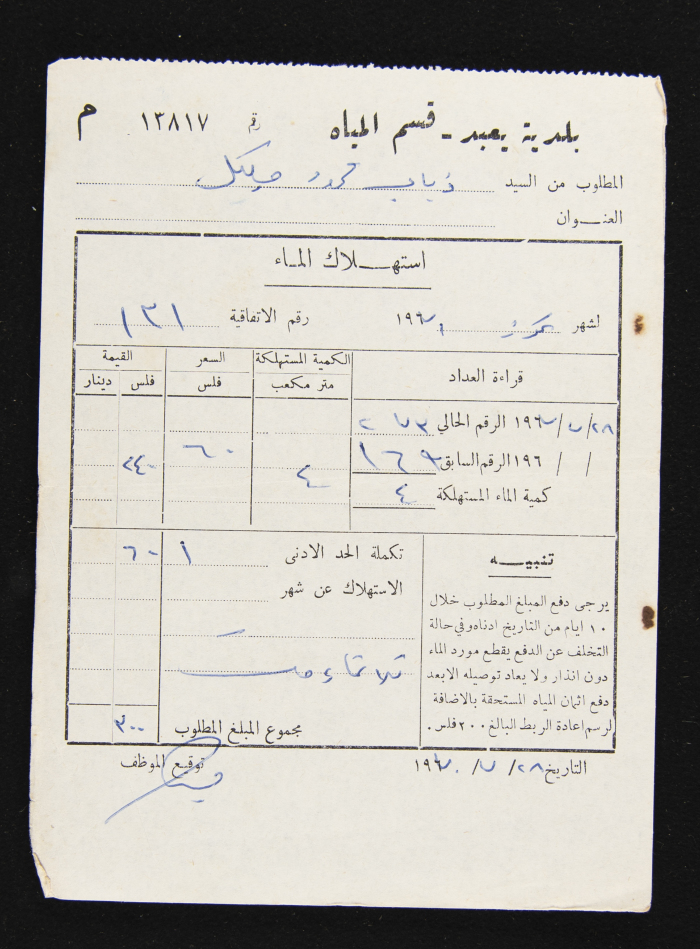 بلدية يعبد - قسم المياه رقم ١٣٨١٧ م
المطلوب من السيد ذياب محمود
العنوان
استهلاك الماء
لشهر تموز ١٩٦ رقم الاتفاقية ١٣١
قراءة العداد الكمية المستهلكة السعر القيمة
متر مكعب فلس فلس دينار
٢٨/٧/١٩٦ الرقم الحالي ١٧٣
/ / ١٩٦ الرقم السابق ١٦٩ ٤ ٦٠ ٢٤٠
كمية الماء المستهلكة ٤
تكملة الحد الادنى ١ ٦٠
الاستهلاك عن شهر
فلس
مجموع المبلغ المطلوب ٣٠٠
تنبيه
يرجى دفع المبلغ المطلوب خلال
١٠ ايام من التاريخ ادناه وفي حالة
التخلف عن الدفع يقطع مورد الماء
دون انذار ولا يعاد توصيله الا بعد
دفع اثمان المياه المستحقة بالاضافة
لرسم اعادة الربط البالغ ٢٠٠ فلس .
التاريخ ٢٨/٧/١٩٦ توقيع الموظف